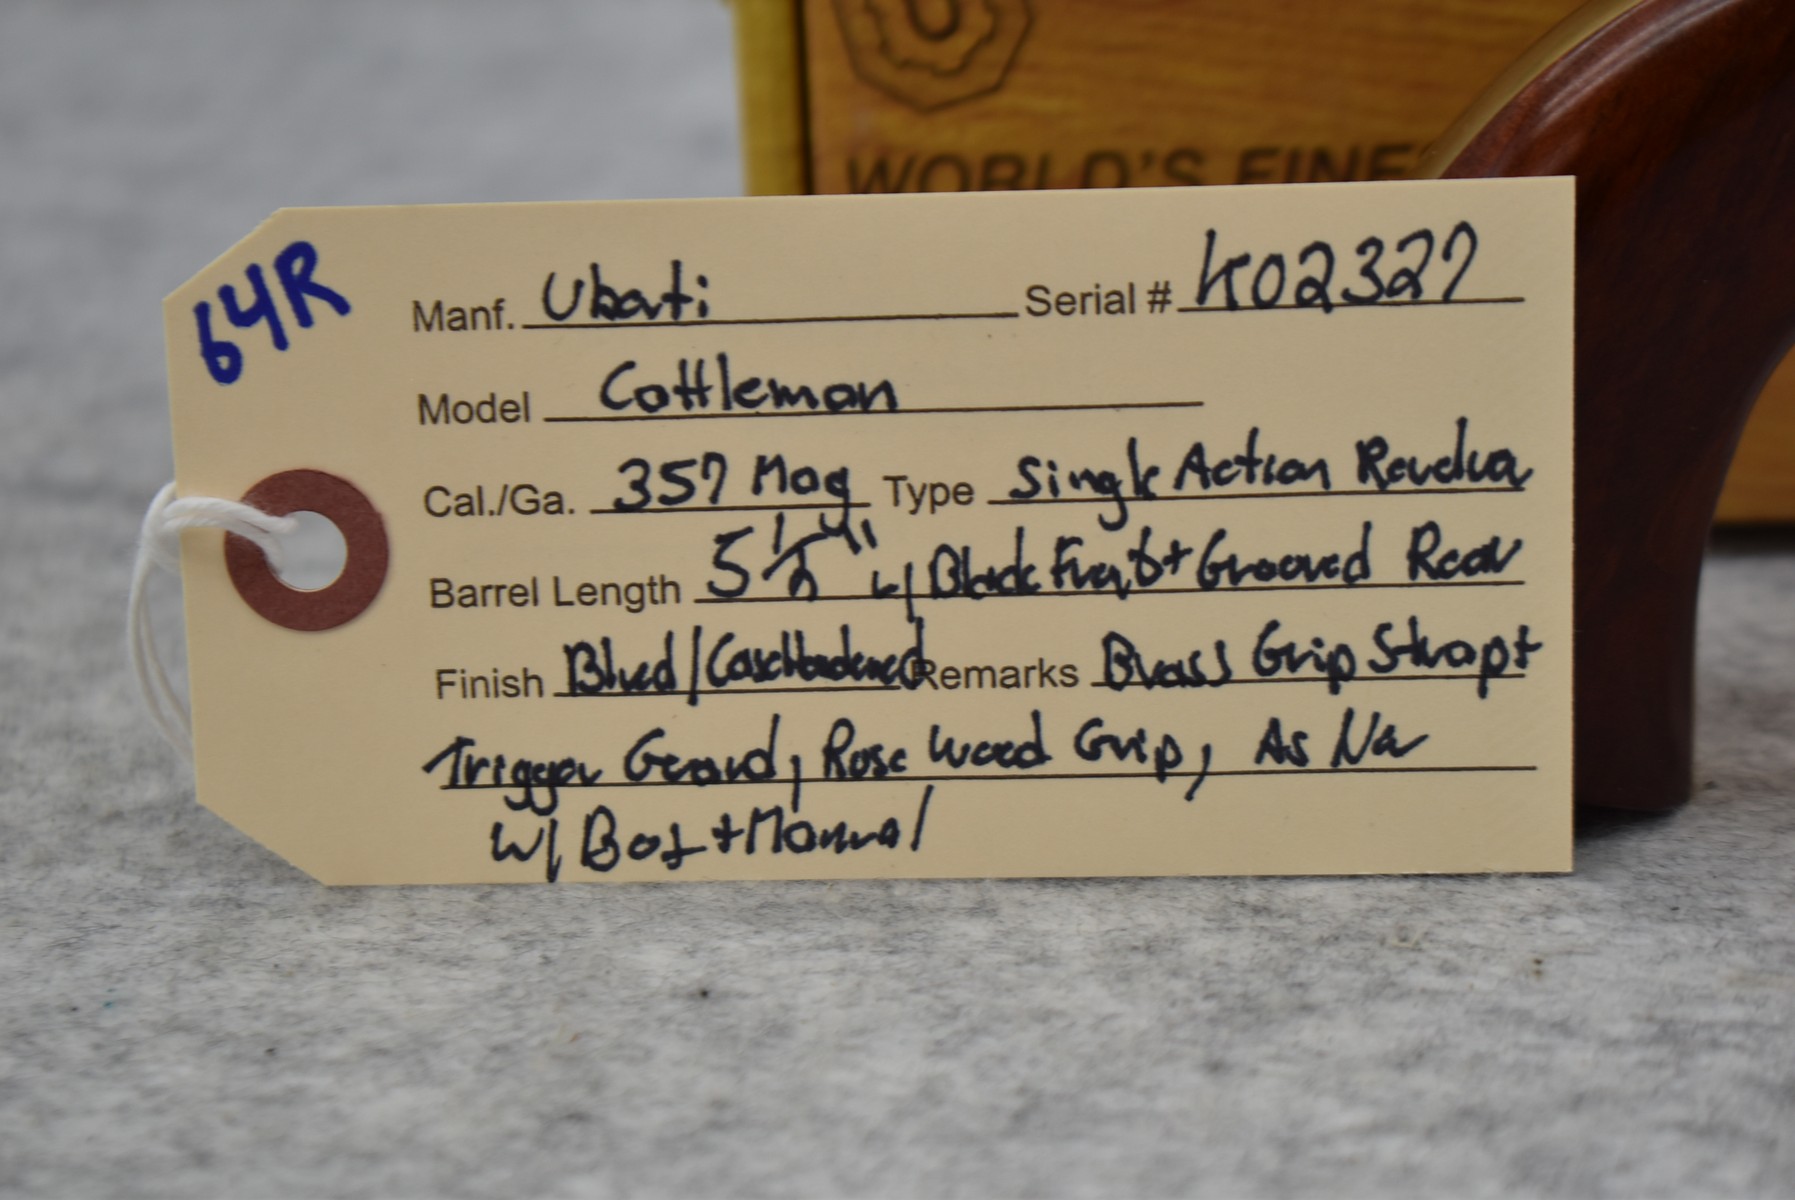 WORLD'S FINES
64R
Manf. Uberti Serial # K02327
Model Cattleman
Cal./Ga. 357 Mag Type Single Action Revolver
Barrel Length 5 1/2" w/ Blade Front + Grooved Rear
Finish Blued/CaseHardened Remarks Brass Grip Strap +
Trigger Guard, Rose Wood Grip, As New
w/ Box + Manual